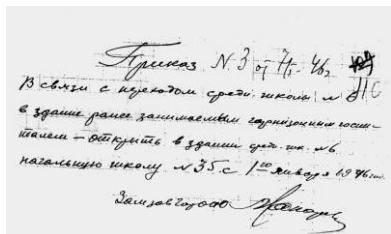 Приказ N. 3 от 7/I-46г
110
В связи с переходом средн. школы № 6
в здание ранее занимаемым гарнизонным госпи-
талем - открыть в здании средн. шк. №6
начальную школу № 35. с 1го января 1946 год.
Зам зав гороно